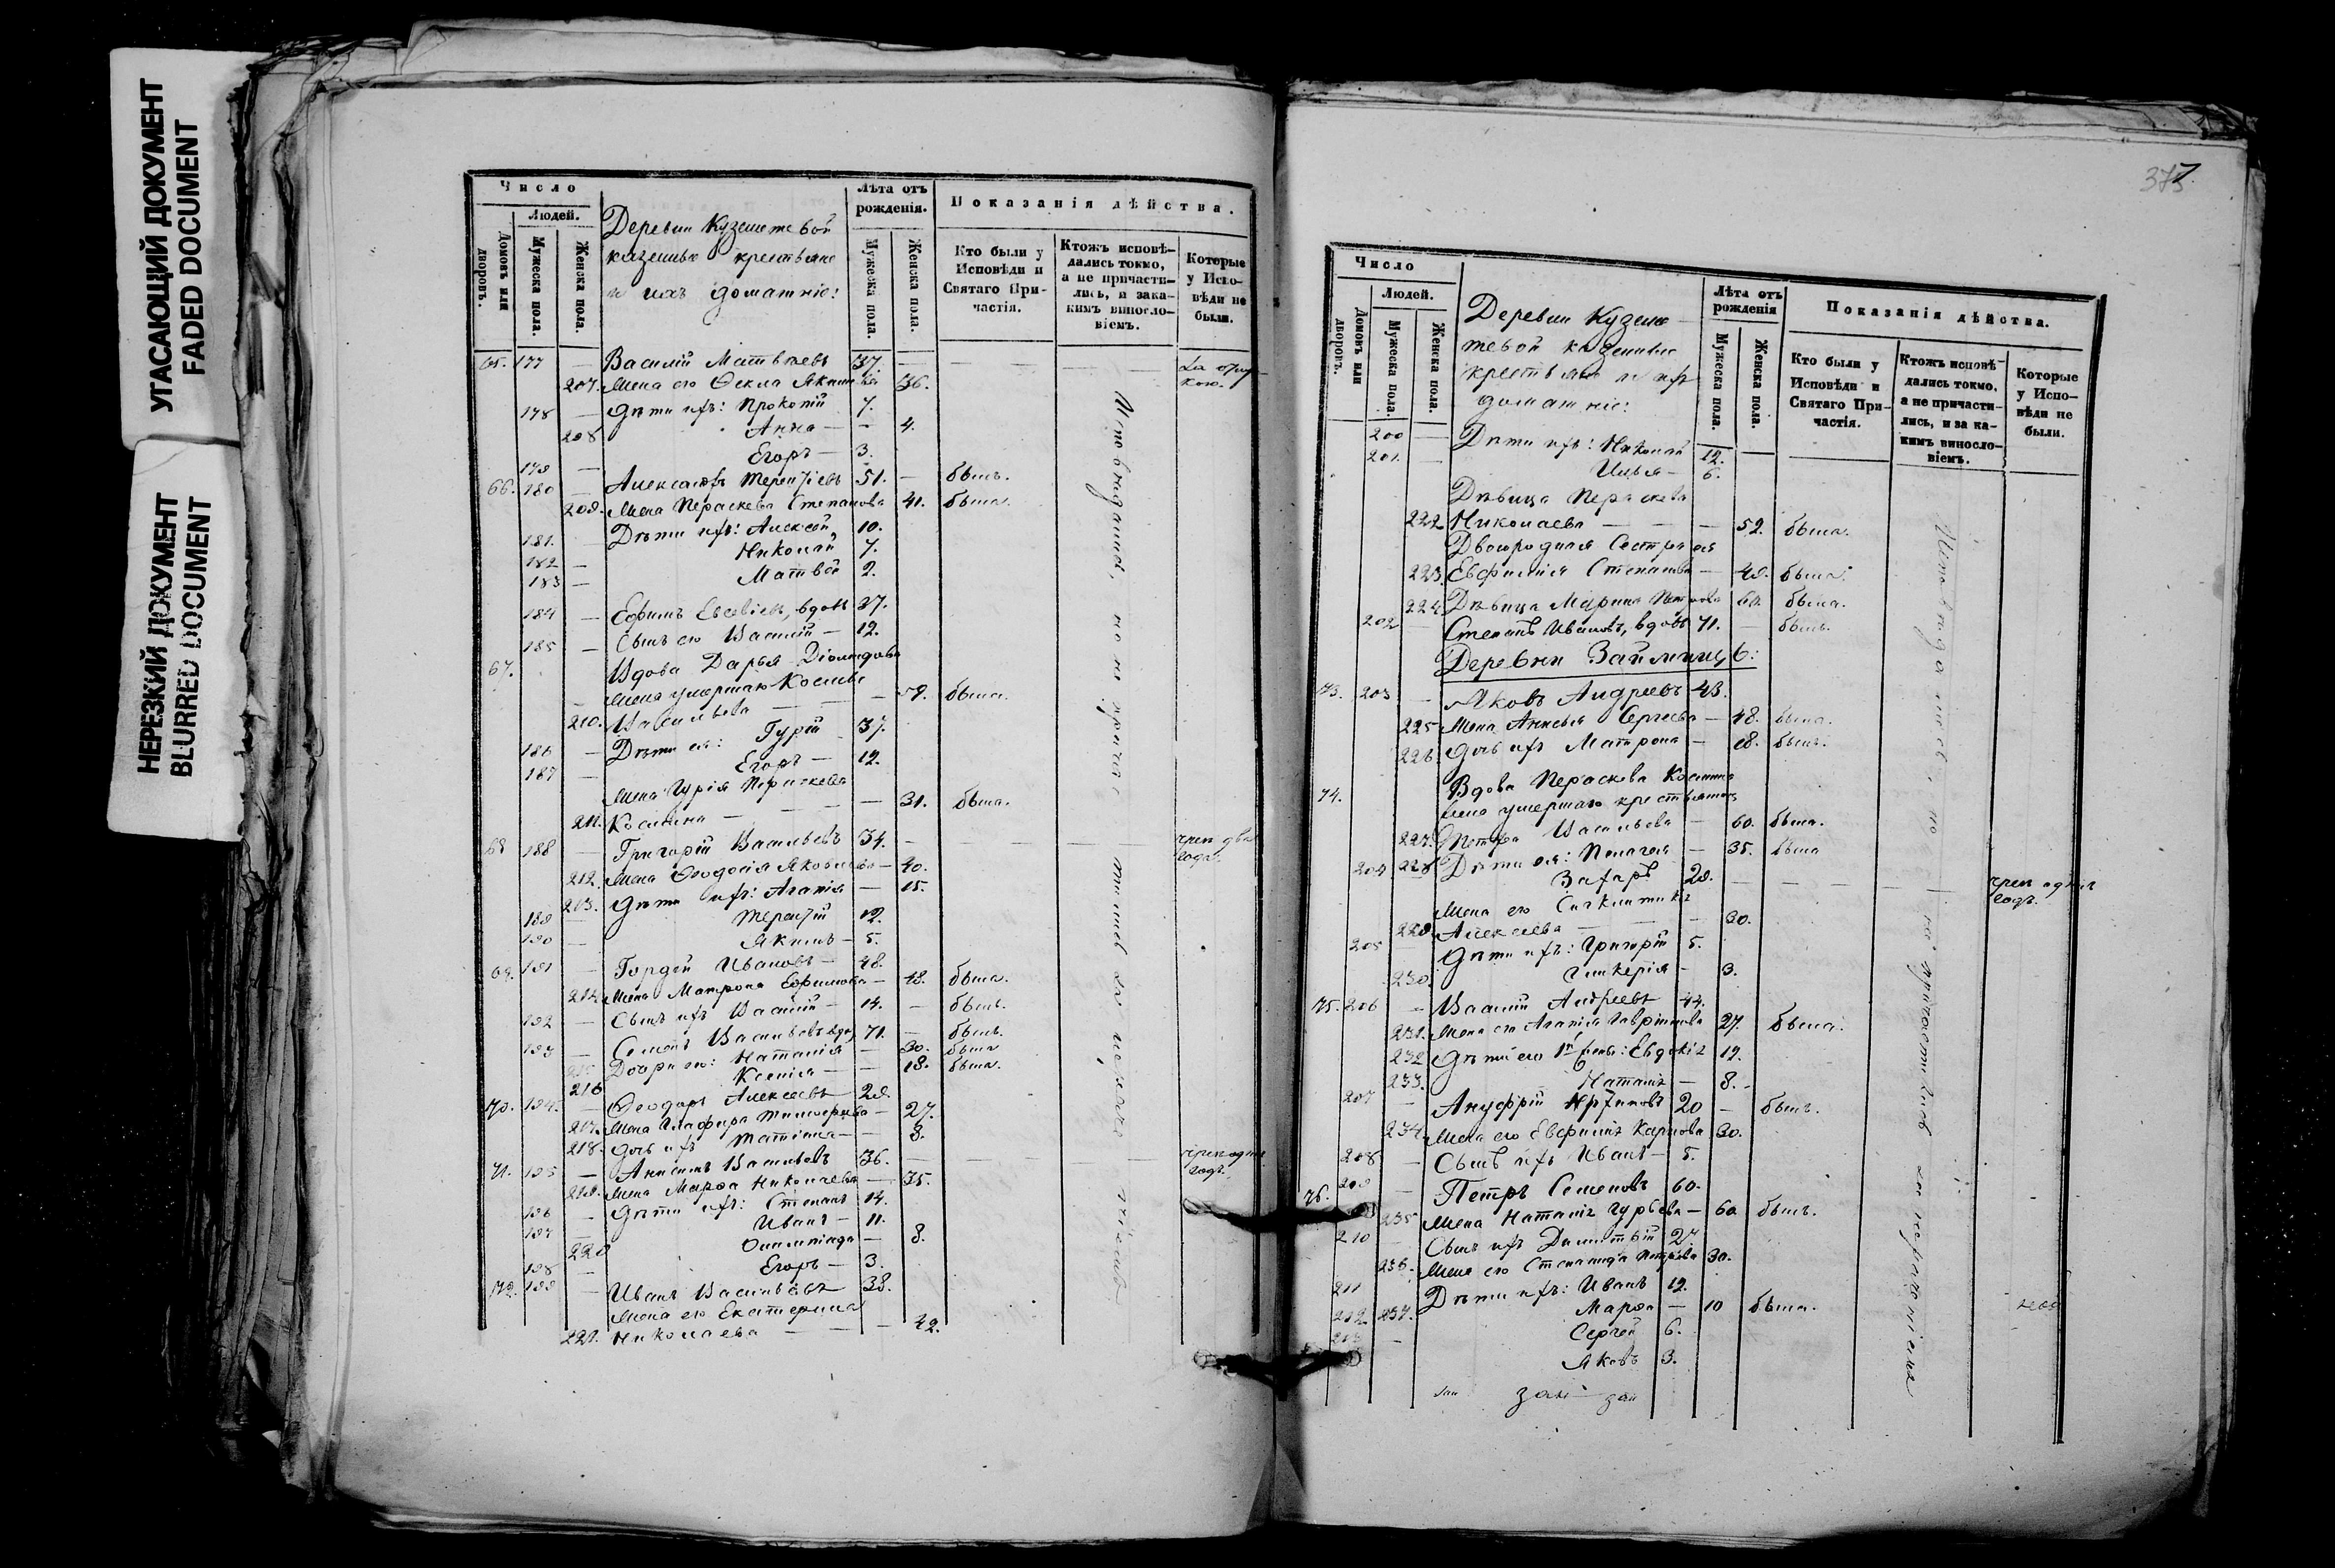 УГАСАЮЩИЙ ДОКУМЕНТ
FADED DOCUMENT
НЕРЕЗКИЙ ДОКУМЕНТ
BLURRED DOCUMENT
Число
Людей.
Домовъ или дворовъ.
Мужеска пола.
Женска пола.
Деревни
крестьяне
и ихъ домашніе:
Лѣта отъ рожденія.
Мужеска пола.
Женска пола.
Показанія дѣйства.
Кто были у Исповѣди и Святаго Причастія.
Ктожъ исповѣдались токмо, а не причастились, и за какимъ винословіемъ.
Которые у Исповѣди не были.
65. 177 — Василій Матвѣевъ 37. —
207. Жена его Ѳекла 36.
178 — Дѣти ихъ: Прокопій 7.
208 Анна — — 4.
179 — Егоръ — 3.
66. 180 — Александръ Терентіевъ 51. — былъ.
209. Жена Параскева Степанова 41. была.
181. — Дѣти ихъ: Алексѣй 10.
182 — Николай 7.
183 — Матвѣй 2.
184 — Ефимъ Евсевіевъ, вдовъ 37.
185 — Сынъ его Василій — 12.
67. Вдова Дарья
жена умершаго Космы
210. Васильева — — — 58. была.
186 — Дѣти ея: Гурій 37.
187 — Егоръ — 12.
Жена Гурія Параскева
211. Космина — — — — 31. была.
68 188 — Григорій Васильевъ 34. — — — — чрез два года.
212. Жена Ѳеодосія Яковлева — 40.
213. Дѣти ихъ: Агапія — 15.
189 — Терентій 12.
190 — Якимъ — 5.
69. 191 — Гордѣй Ивановъ — 48.
214. Жена Матрона Ефимова — 48. была.
192 — Сынъ ихъ Василій — 14. — былъ.
193 — Семенъ Васильевъ вдов. 71. — былъ.
215 Дочери его: Наталія — 30. была
216 Ксенія — — 18. была.
70. 194. — Ѳеодоръ Алексѣевъ 29.
217. Жена Глафира Тимоѳеева — 27.
218. Дочь ихъ Татіана — — 8.
71. 195 — Анисимъ Васильевъ 36. — — — — чрез один годъ.
219. Жена Марѳа Николаева — 35.
196 — Дѣти ихъ: Степанъ 14.
197 — Иванъ — 11.
220 Олимпіада — 8.
198 — Егоръ — 3.
72. 199 — Иванъ Васильевъ 38.
Жена его Екатерина
221. Николаева — — — 42.
Число
Людей.
Домовъ или дворовъ.
Мужеска пола.
Женска пола.
Деревни
крестьяне и ихъ
домашніе:
Лѣта отъ рожденія
Мужеска пола.
Женска пола.
Показанія дѣйства.
Кто были у Исповѣди и Святаго Причастія.
Ктожъ исповѣдались токмо, а не причастились, и за какимъ винословіемъ.
Которые у Исповѣди не были.
200 — Дѣти ихъ: Николай 12.
201. — Илья — 6.
Дѣвица Параскева
222 Николаева — — — 52. была.
Двоюродная Сестра ея
223. Евфимія Степанова — 49. была.
224 Дѣвица Марина 60. была.
202 — Степанъ Ивановъ, вдовъ 71. — былъ.
Деревни Займищъ:
73. 203 — Яковъ Андреевъ 43.
225 Жена Анисья Сергѣева — 48. была.
226. Дочь ихъ Матрона — 18. была.
74. Вдова Параскева Космина
жена умершаго крестьянина
227. Петра Васильева — 60. была.
228 Дѣти ея: Пелагея — 35. была
204 Захаръ 29. — — — — чрез один годъ.
Жена его Синклитикія
229. Алексѣева — — 30.
205 Дѣти ихъ: Григорій 5.
230. Гликерія — 3.
75. 206 — Василій Андреевъ 44.
231. Жена его Агапія Гавріилова 27. была.
232 Дѣти его 1й жены: Евдокія 12.
233. Наталія — 8. -
207 — Ануфрій 20 — былъ.
234. Жена его Евфимія Карпова 30.
208 — Сынъ ихъ Иванъ — 5.
76. 209 — Петръ Семеновъ 60.
235 Жена Наталія Гурьева — 60 былъ.
210 Сынъ ихъ Димитрій 27
236. Жена его Степанида Петрова 30.
211 Дѣти ихъ: Иванъ 12.
237. Марѳа — 10 была.
212 Сергѣй 6.
213 — Яковъ 3.